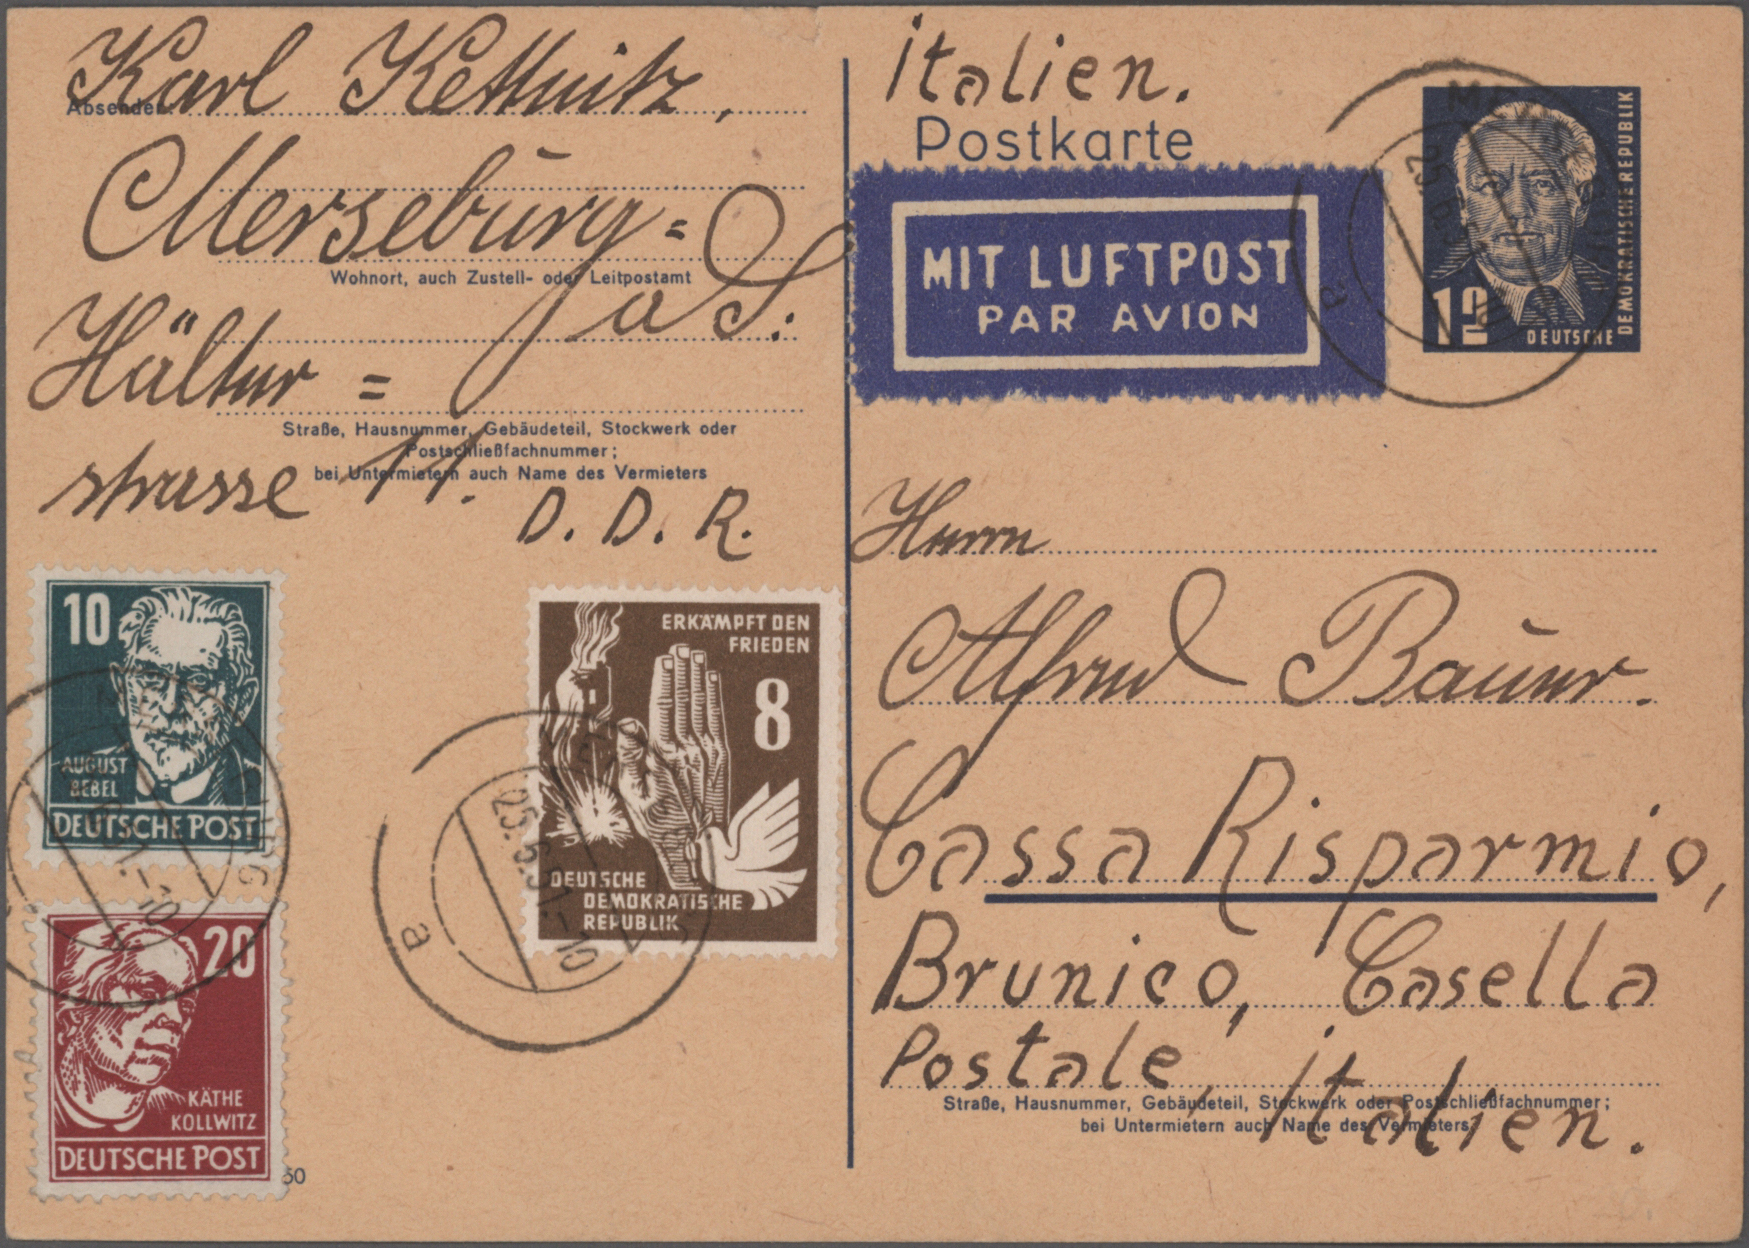 Karl Kettnitz,
Absender:
Merseburg =
Wohnort, auch Zustell- oder Leitpostamt
Hälter =
Straße, Hausnummer, Gebäudeteil, Stockwerk oder
Postschließfachnummer;
bei Untermietern auch Name des Vermieters
strasse 11.
D. D. R.
10
AUGUST
BEBEL
DEUTSCHE POST
20
KÄTHE
KOLLWITZ
DEUTSCHE POST
50
ERKÄMPFT DEN
FRIEDEN
8
DEUTSCHE
DEMOKRATISCHE
REPUBLIK
25.6.51.-10
a
italien.
Postkarte
MIT LUFTPOST
PAR AVION
12
DEUTSCHE
DEMOKRATISCHE REPUBLIK
a
Herrn
Alfred Bauer.
Cassa Risparmio,
Brunico, Casella
Postale, italien.
Straße, Hausnummer, Gebäudeteil, Stockwerk oder Postschließfachnummer;
bei Untermietern auch Name des Vermieters